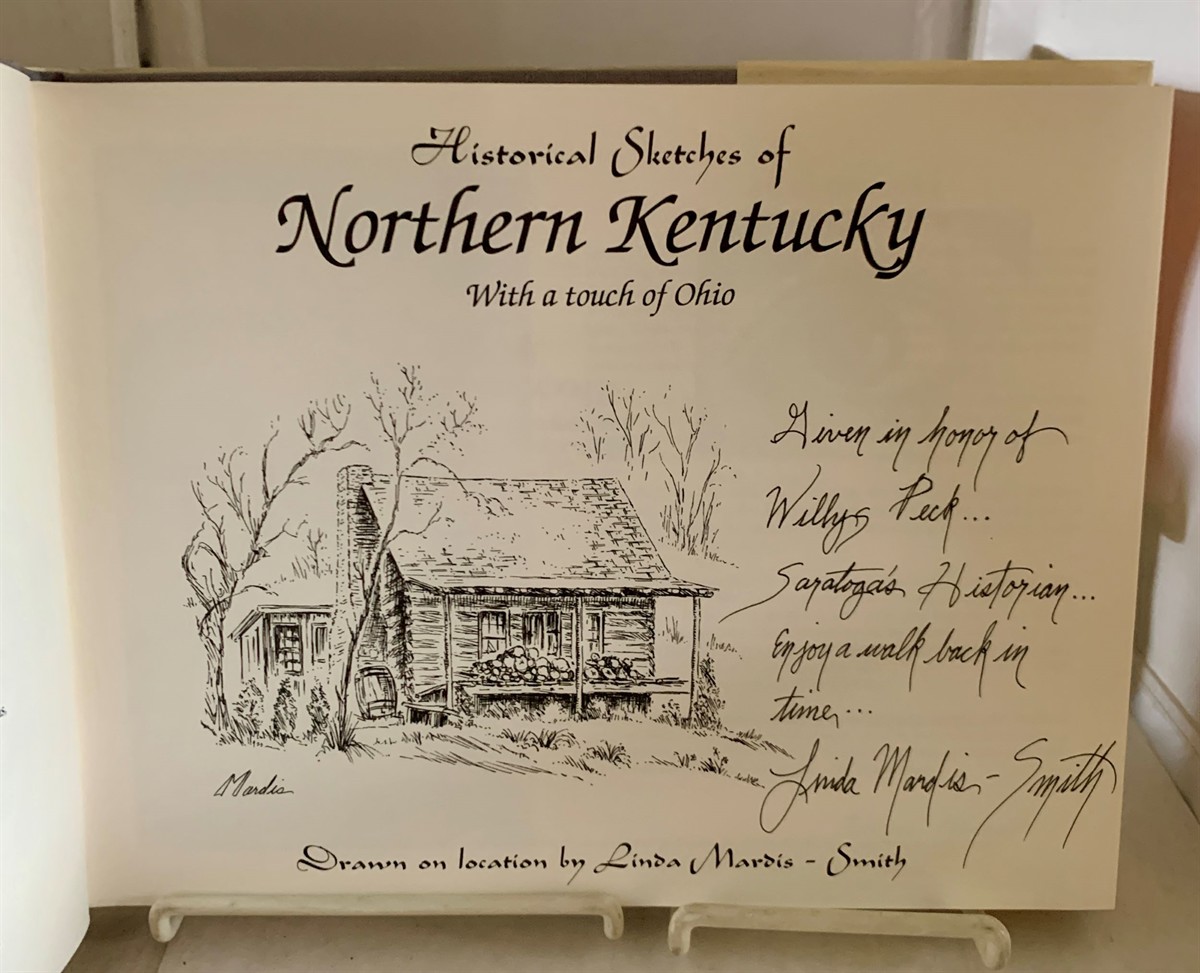 Historical Sketches of
Northern Kentucky
With a touch of Ohio
Given in honor of
Willys Peck...
Saratoga's Historian...
Enjoy a walk back in
time,...
Linda Mardis - Smith
Mardis
Drawn on location by Linda Mardis - Smith